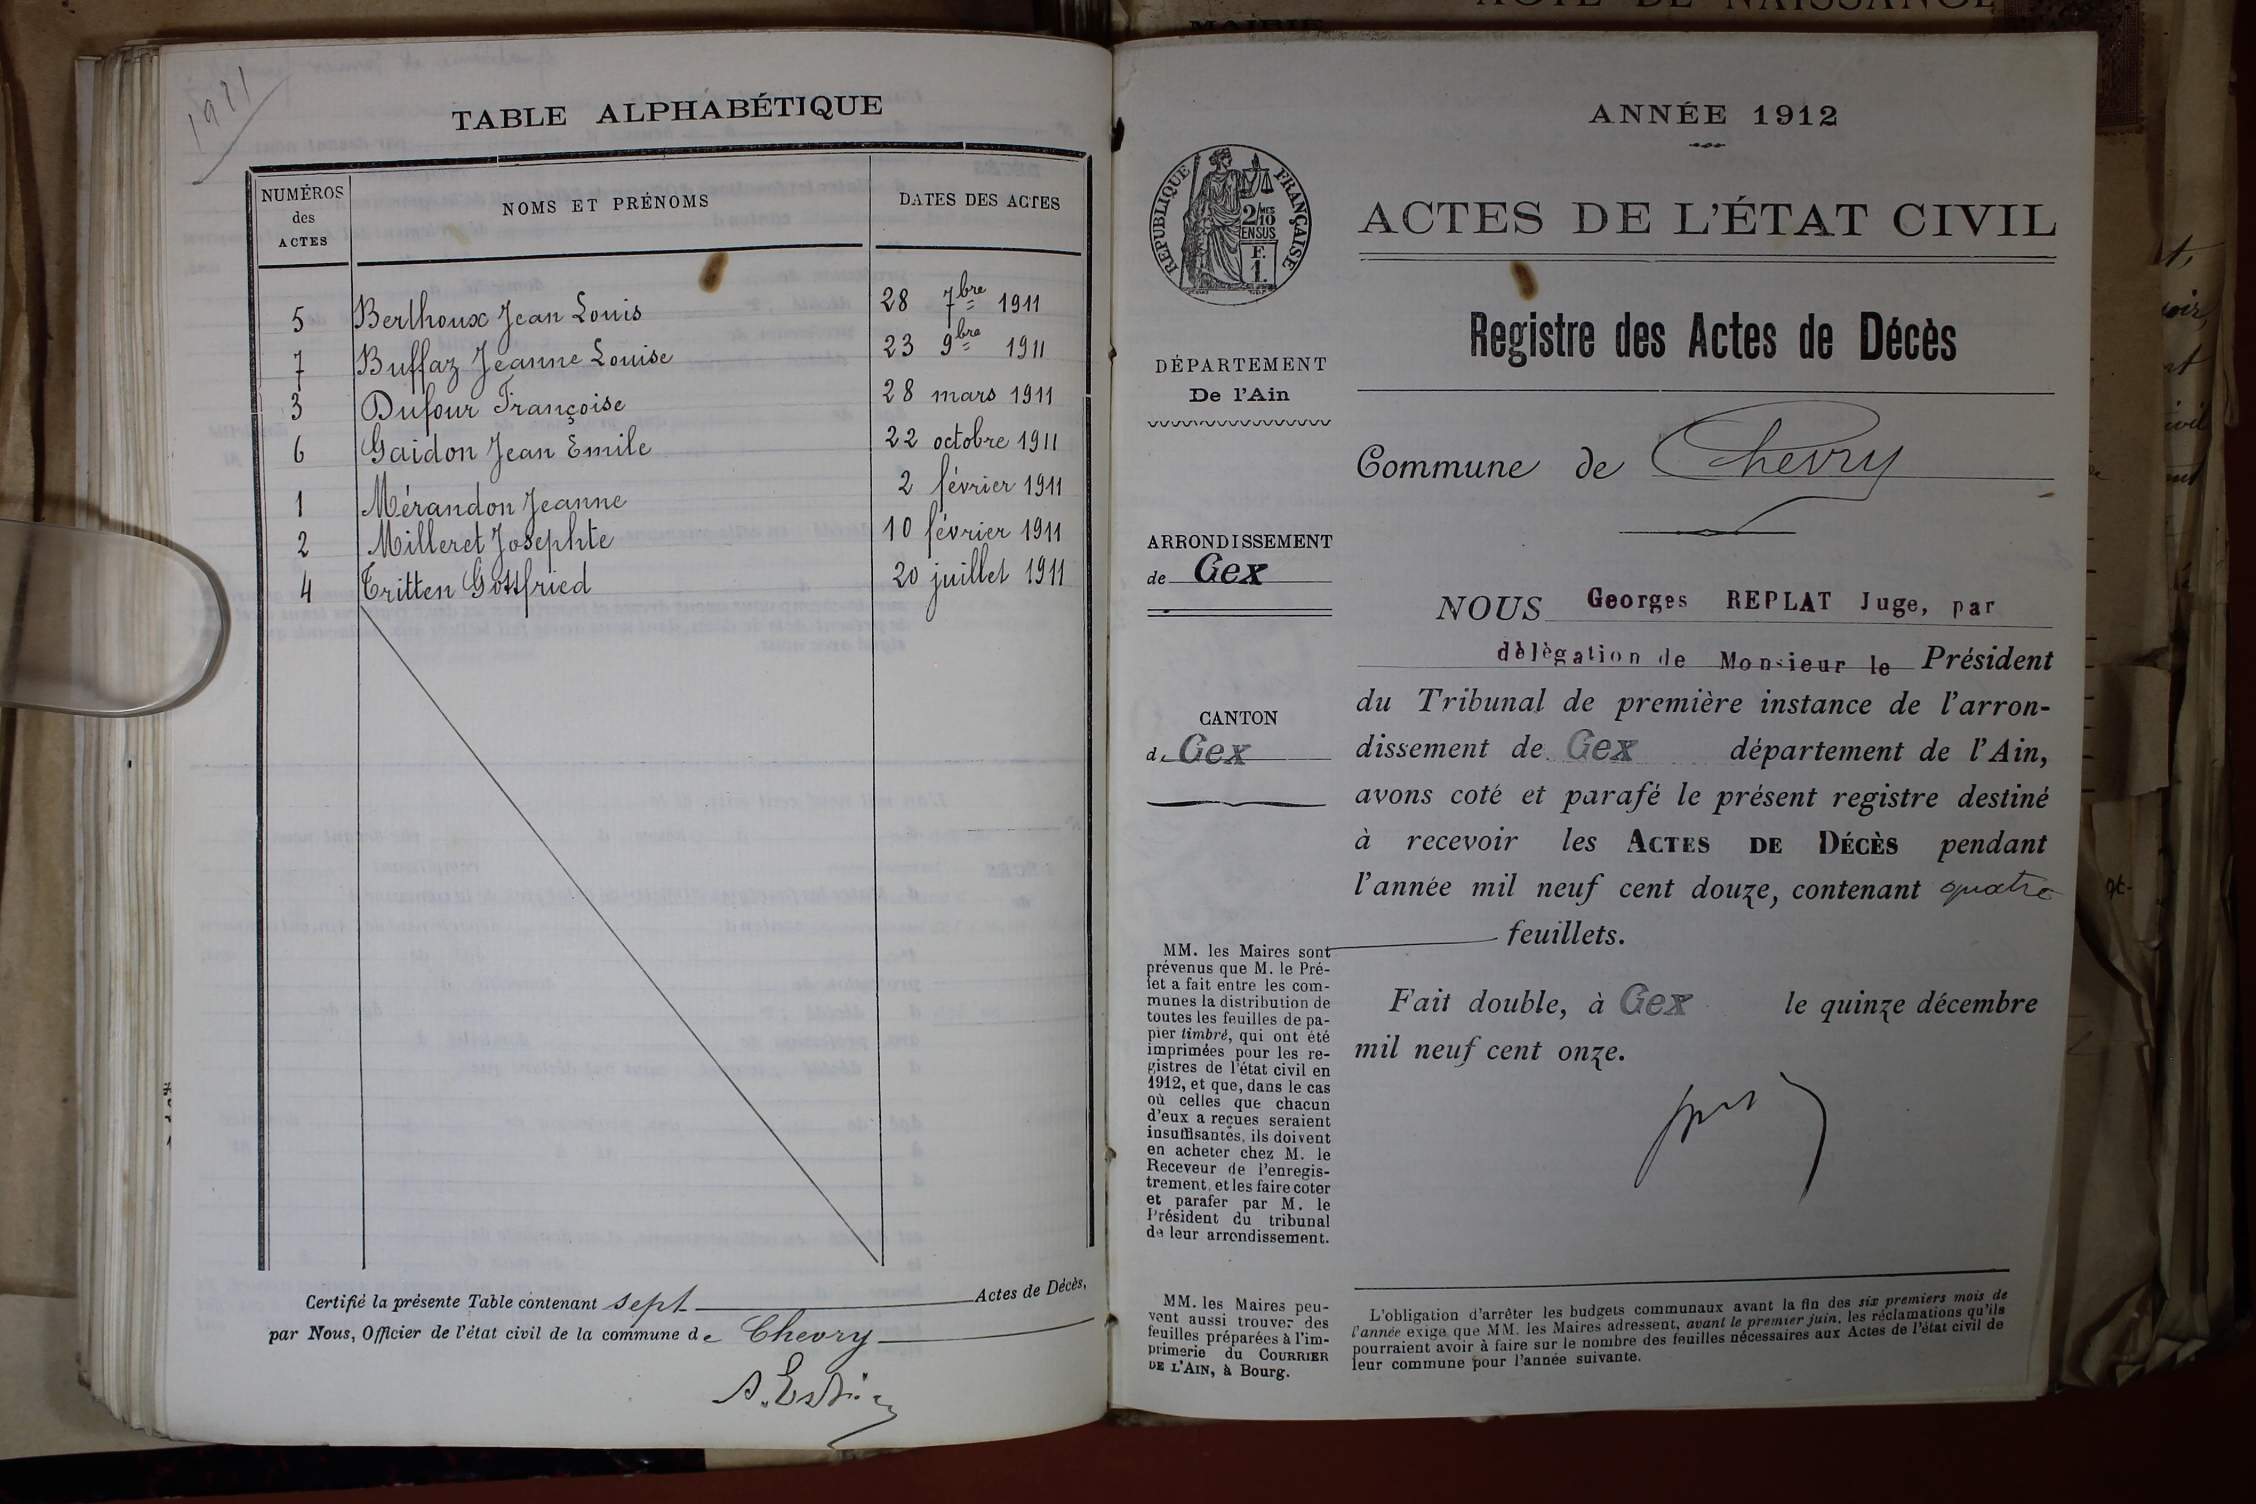 1911
TABLE ALPHABÉTIQUE
NUMÉROS
des
ACTES
NOMS ET PRÉNOMS
DATES DES ACTES
5 Berthoux Jean Louis 28 7bre 1911
7 Buffaz Jeanne Louise 23 9bre 1911
3 Dufour Françoise 28 mars 1911
6 Gaidon Jean Emile 22 octobre 1911
1 Mérandon Jeanne 2 février 1911
2 Milleret Josephte 10 février 1911
4 Tritten Gottfried 20 juillet 1911
Certifié la présente Table contenant sept Actes de Décès,
par Nous, Officier de l'état civil de la commune de Chevry
ANNÉE 1912
RÉPUBLIQUE FRANÇAISE
2/10MES
EN SUS
F.
1.
ACTES DE L'ÉTAT CIVIL
Registre des Actes de Décès
DÉPARTEMENT
De l'Ain
Commune de Chevry
ARRONDISSEMENT
de Gex
CANTON
de Gex
NOUS Georges REPLAT Juge, par
délègation de Monsieur le Président
du Tribunal de première instance de l'arron-
dissement de Gex département de l'Ain,
avons coté et parafé le présent registre destiné
à recevoir les ACTES DE DÉCÈS pendant
l'année mil neuf cent douze, contenant quatre
feuillets.
Fait double, à Gex le quinze décembre
mil neuf cent onze.
MM. les Maires sont
prévenus que M. le Pré-
fet a fait entre les com-
munes la distribution de
toutes les feuilles de pa-
pier timbré, qui ont été
imprimées pour les re-
gistres de l'état civil en
1912, et que, dans le cas
où celles que chacun
d'eux a reçues seraient
insuffisantes, ils doivent
en acheter chez M. le
Receveur de l'enregis-
trement, et les faire coter
et parafer par M. le
Président du tribunal
de leur arrondissement.
MM. les Maires peu-
vent aussi trouver des
feuilles préparées à l'im-
primerie du COURRIER
DE L'AIN, à Bourg.
L'obligation d'arrêter les budgets communaux avant la fin des six premiers mois de
l'année exige que MM. les Maires adressent, avant le premier juin, les réclamations qu'ils
pourraient avoir à faire sur le nombre des feuilles nécessaires aux Actes de l'état civil de
leur commune pour l'année suivante.